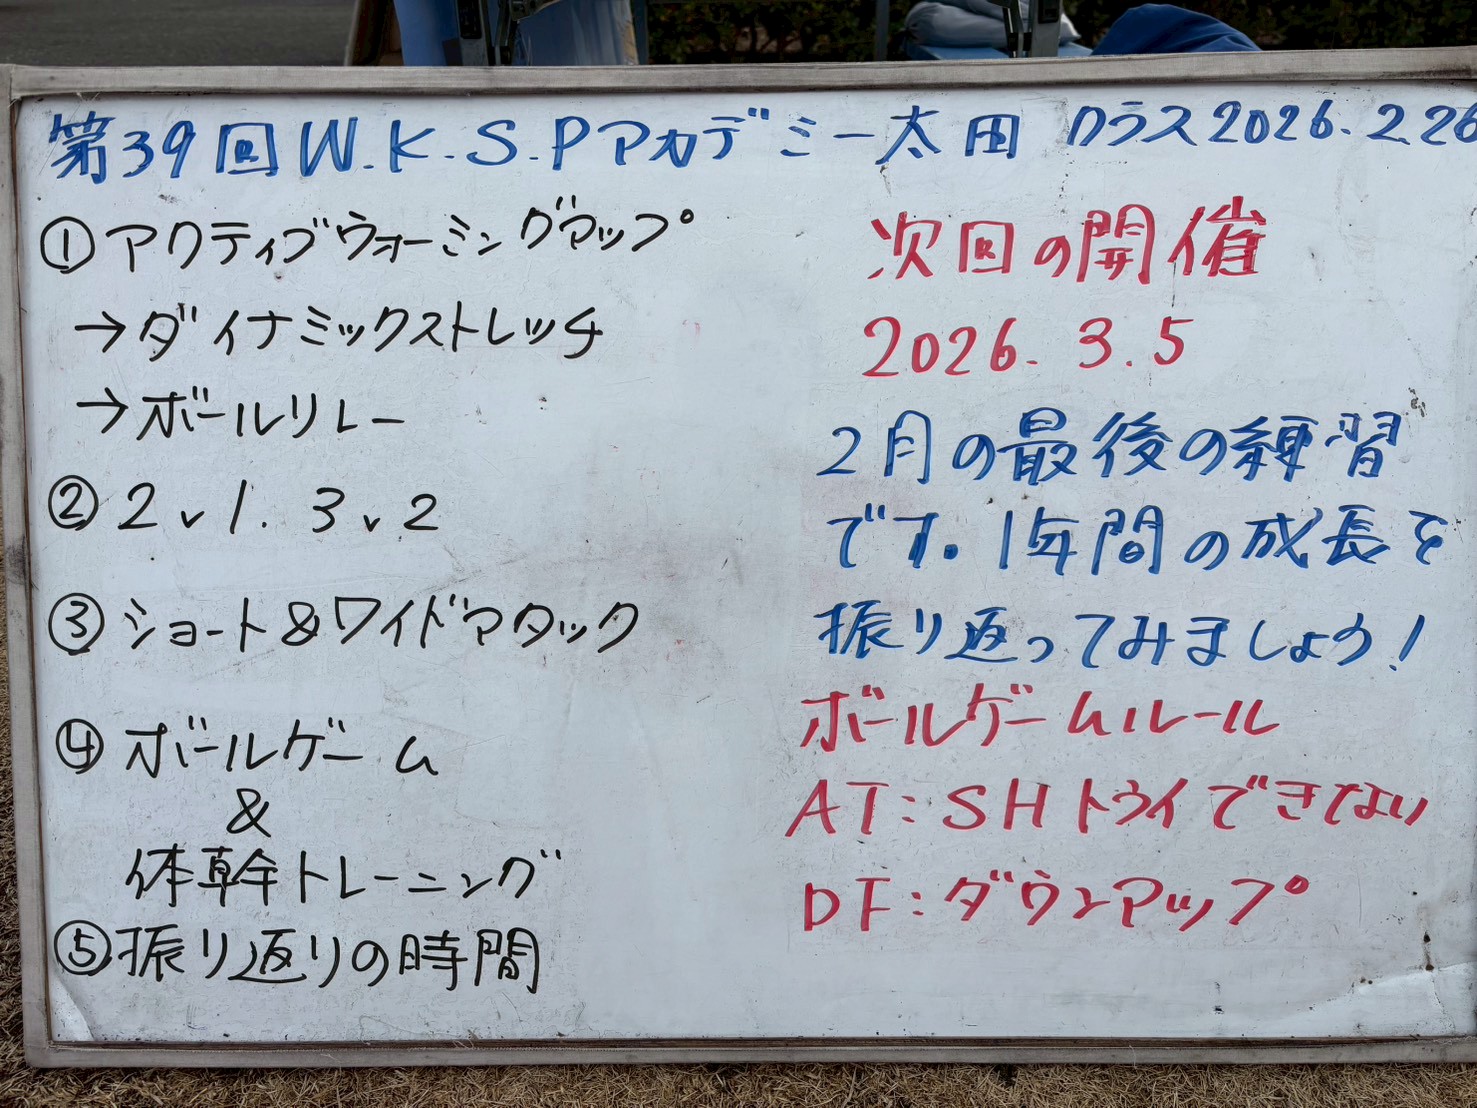 第39回W.K.S.Pアカデミー太田 クラス2026.2.26
①アクティブウォーミングアップ
→ダイナミックストレッチ
→ボールリレー
②2v1.3v2
③ショート&ワイドアタック
④ボールゲーム
&
体幹トレーニング
⑤振り返りの時間
次回の開催
2026.3.5
2月の最後の練習
です。1年間の成長を
振り返ってみましょう!
ボールゲームルール
AT:SHトライできない
DF:ダウンアップ